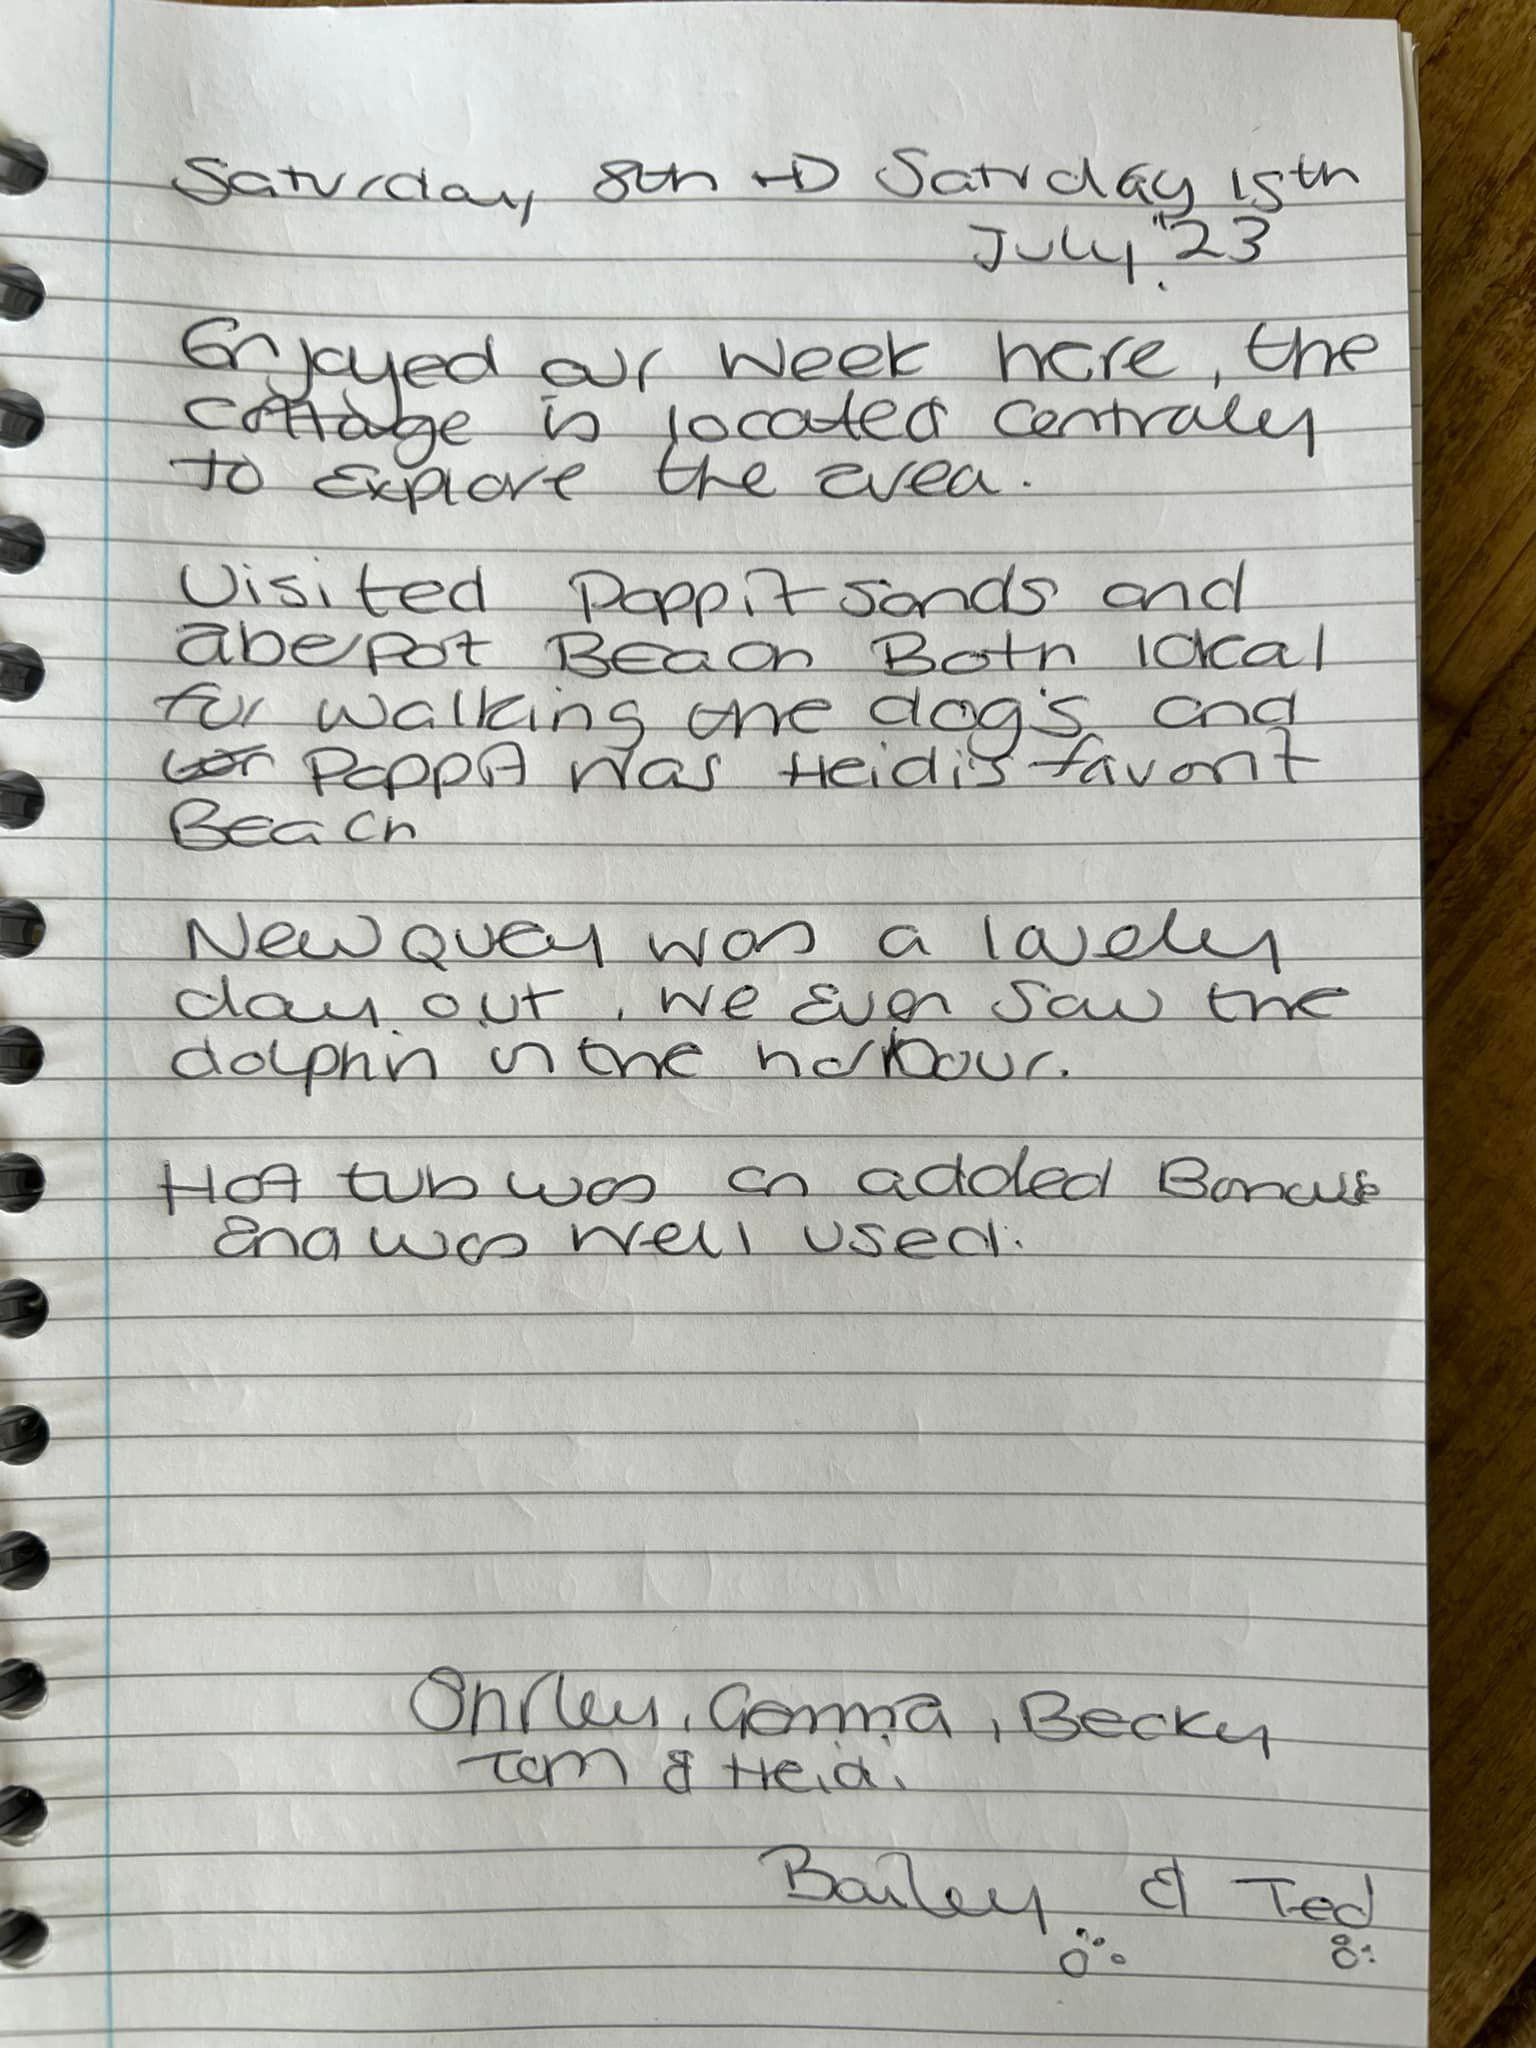 Saturday 8th to Saturday 15th
July "23
Enjoyed our week here, the
cottage is located centraly
to explore the area.
Visited Poppit sands and
aberpot Beach Both
for walking the dog's and
Poppit was Heidi's favorit
Beach
New Quey was a lovely
day out, we even saw the
dolphin in the harbour.
Hot tub was an added Bonus
and was well used.
Shirley, Gemma, Becky
Tom & Heidi
Bailey & Ted